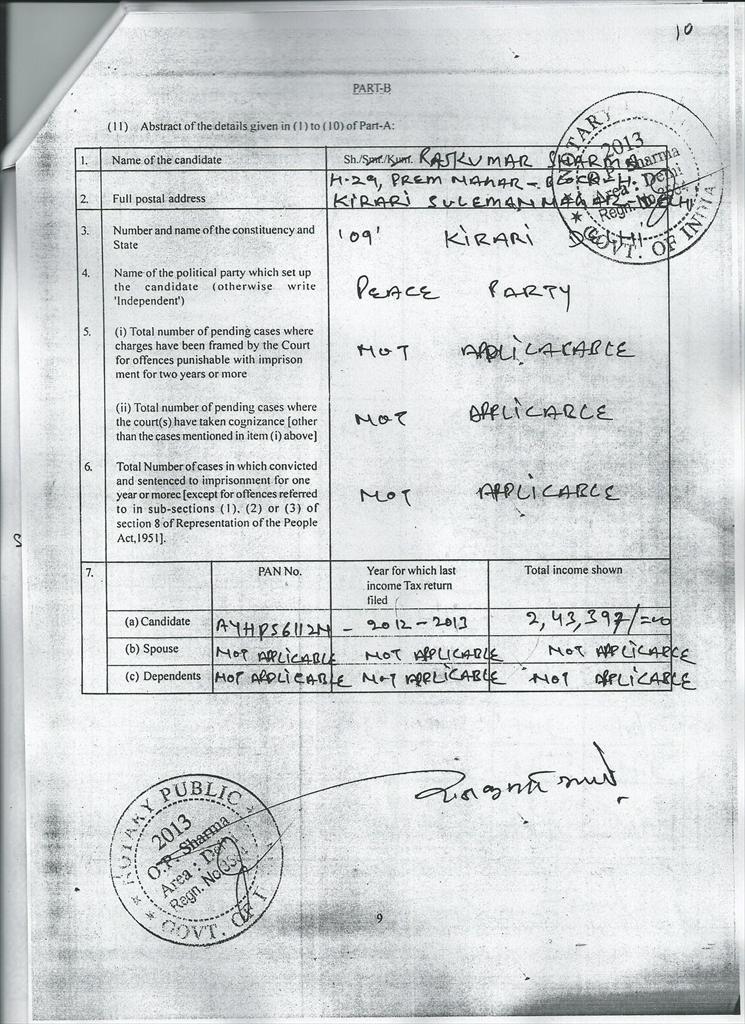 10
PART-B
(11) Abstract of the details given in (1) to (10) of Part-A:
1. Name of the candidate Sh./Smt./Kum. RAJKUMAR SHARMA
2. Full postal address H-29, PREM NAGAR - BLOCK-H.
KIRARI SULEMAN NAGAR - DELHI
3. Number and name of the constituency and
State
'09' KIRARI DELHI
4. Name of the political party which set up
the candidate (otherwise write
'Independent')
PEACE PARTY
5. (i) Total number of pending cases where
charges have been framed by the Court
for offences punishable with imprison
ment for two years or more
NOT APPLICAKABLE
(ii) Total number of pending cases where
the court(s) have taken cognizance [other
than the cases mentioned in item (i) above]
NOT APPLICABLE
6. Total Number of cases in which convicted
and sentenced to imprisonment for one
year or morec [except for offences referred
to in sub-sections (1), (2) or (3) of
section 8 of Representation of the People
Act,1951].
NOT APPLICABLE
7. PAN No. Year for which last
income Tax return
filed
Total income shown
(a) Candidate AYHPS6112N - 2012-2013 2,43,397/=00
(b) Spouse NOT APPLICABLE NOT APPLICABLE NOT APPLICABLE
(c) Dependents NOT APPLICABLE NOT APPLICABLE NOT APPLICABLE
NOTARY
2013
Sharma
Area: Delhi
Regn. No.
GOVT. OF INDIA
NOTARY PUBLIC
2013
O.P. Sharma
Area : Delhi
Regn. No
GOVT. OF I
9